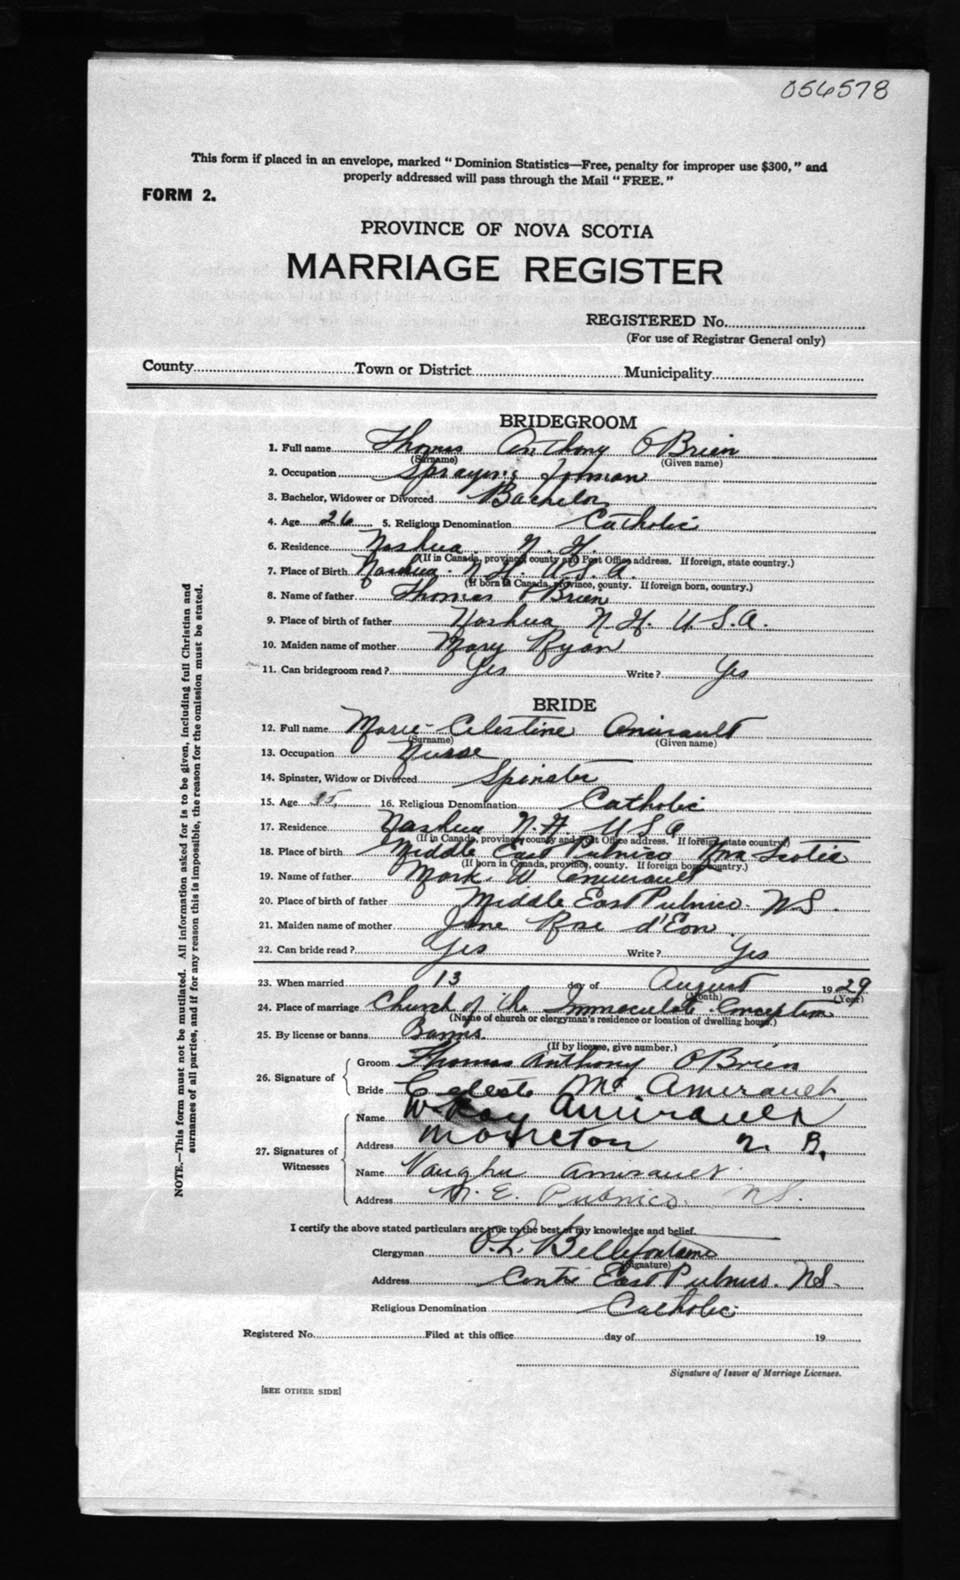 056578
This form if placed in an envelope, marked "Dominion Statistics—Free, penalty for improper use $300," and
properly addressed will pass through the Mail "FREE."
FORM 2.
PROVINCE OF NOVA SCOTIA
MARRIAGE REGISTER
REGISTERED No.
(For use of Registrar General only)
County Town or District Municipality
BRIDEGROOM
1. Full name Thomas Anthony O'Brien
(Surname) (Given name)
2. Occupation Spraying
3. Bachelor, Widower or Divorced Bachelor
4. Age 26 5. Religious Denomination Catholic
6. Residence Nashua N. H.
(If in Canada, province, county and Post Office address. If foreign, state country.)
7. Place of Birth Nashua N. H. U.S.A.
(If born in Canada, province, county. If foreign born, country.)
8. Name of father Thomas O'Brien
9. Place of birth of father Nashua N. H. U.S.A.
10. Maiden name of mother Mary Ryan
11. Can bridegroom read? Yes Write? Yes
BRIDE
12. Full name Marie-Celestine Amirault
(Surname) (Given name)
13. Occupation Nurse
14. Spinster, Widow or Divorced Spinster
15. Age 16. Religious Denomination Catholic
17. Residence Nashua N. H. U S A
(If in Canada, province, county and Post Office address. If foreign state country.)
18. Place of birth Middle East Pubnico Nova Scotia
(If born in Canada, province, county. If foreign born country.)
19. Name of father Mark W. Amirault
20. Place of birth of father Middle East Pubnico. N S.
21. Maiden name of mother Jane Rose d'Eon.
22. Can bride read? Yes Write? Yes
23. When married 13 day of August 1929
(Month) (Year)
24. Place of marriage Church of the Immaculate Conception
(Name of church or clergyman's residence or location of dwelling house.)
25. By license or banns Banns.
(If by license, give number.)
26. Signature of Groom Thomas Anthony O'Brien
Bride Celeste M. Amirault
27. Signatures of Witnesses Name W. Ray Amirault
Address Moncton N. B.
Name Vaughn Amirault
Address M. E. Pubnico. N.S.
I certify the above stated particulars are true to the best of my knowledge and belief.
Clergyman Bellefontaine
(Signature)
Address Centre East Pubnico. NS.
Religious Denomination Catholic
Registered No. Filed at this office day of 19
Signature of Issuer of Marriage Licenses.
[SEE OTHER SIDE]
NOTE.—This form must not be mutilated. All information asked for is to be given, including full Christian and
surnames of all parties, and if for any reason this is impossible, the reason for the omission must be stated.